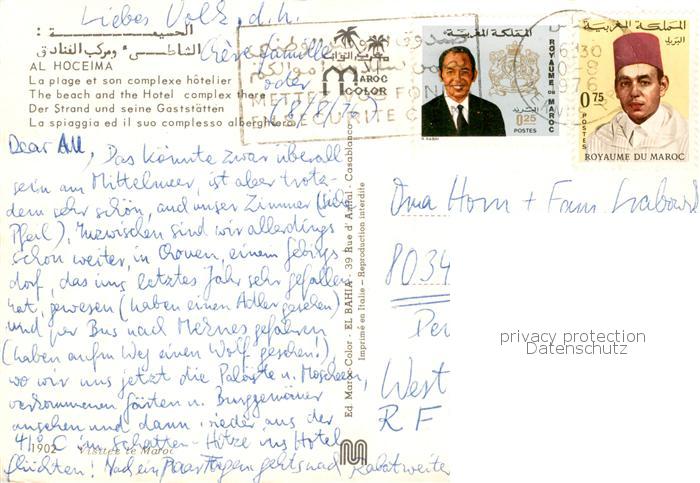 Liebes Volk, d.h.
الحسيمة :
الشاطئ ومركب الفنادق
chère famille
AL HOCEIMA
oder
La plage et son complexe hôtelier
The beach and the Hotel complex there
Der Strand und seine Gaststätten
La spiaggia ed il suo complesso alberghiero
MAROC
COLOR
المملكة المغربية
ROYAUME DU MAROC
البريد
0.25
POSTES
المملكة المغربية
البريد
0.75
POSTES
ROYAUME DU MAROC
1976
Dear All, Das könnte zwar überall
sein am Mittelmeer, ist aber trotz-
dem sehr schön, und unser Zimmer (siehe
Pfeil). Inzwischen sind wir allerdings
schon weiter, in einem Gebirgs
dorf, das uns letztes Jahr sehr gefallen
hat, gewesen (haben einen Adler gesehen)
und per Bus nach Meknes gefahren
(haben auf'm Weg einen Wolf gesehen!),
wo wir uns jetzt die Paläste u. Moscheen,
verkommenen Gärten u. Burggemäuer
ansehen und dann wieder aus der
41° C im Schatten-Hitze ins Hotel
flüchten! Nach ein Paar Tagen gehts nach Rabat weiter
1902 Visitez le Maroc
Ed. Maroc-Color - EL BAHIA - 39 Rue d'Amial - Casablanca
Imprimé en Italie - Reproduction interdite
Oma Horn + Fam.
8034
West
R F
privacy protection
Datenschutz